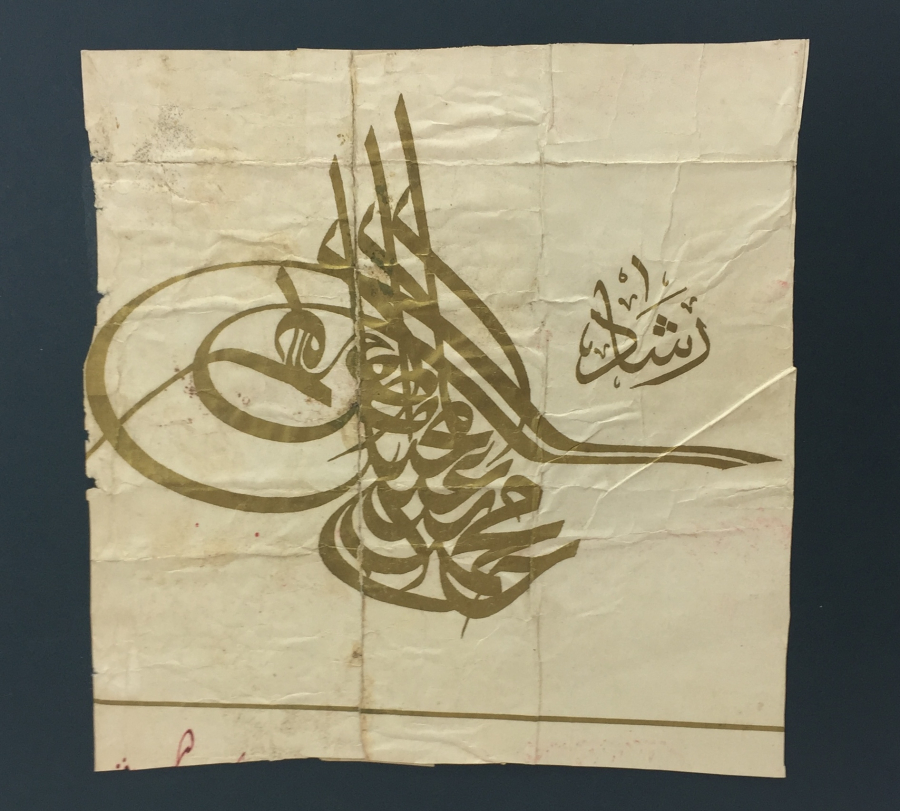 رشاد
محمد خان بن عبدالمجيد المظفر دائما